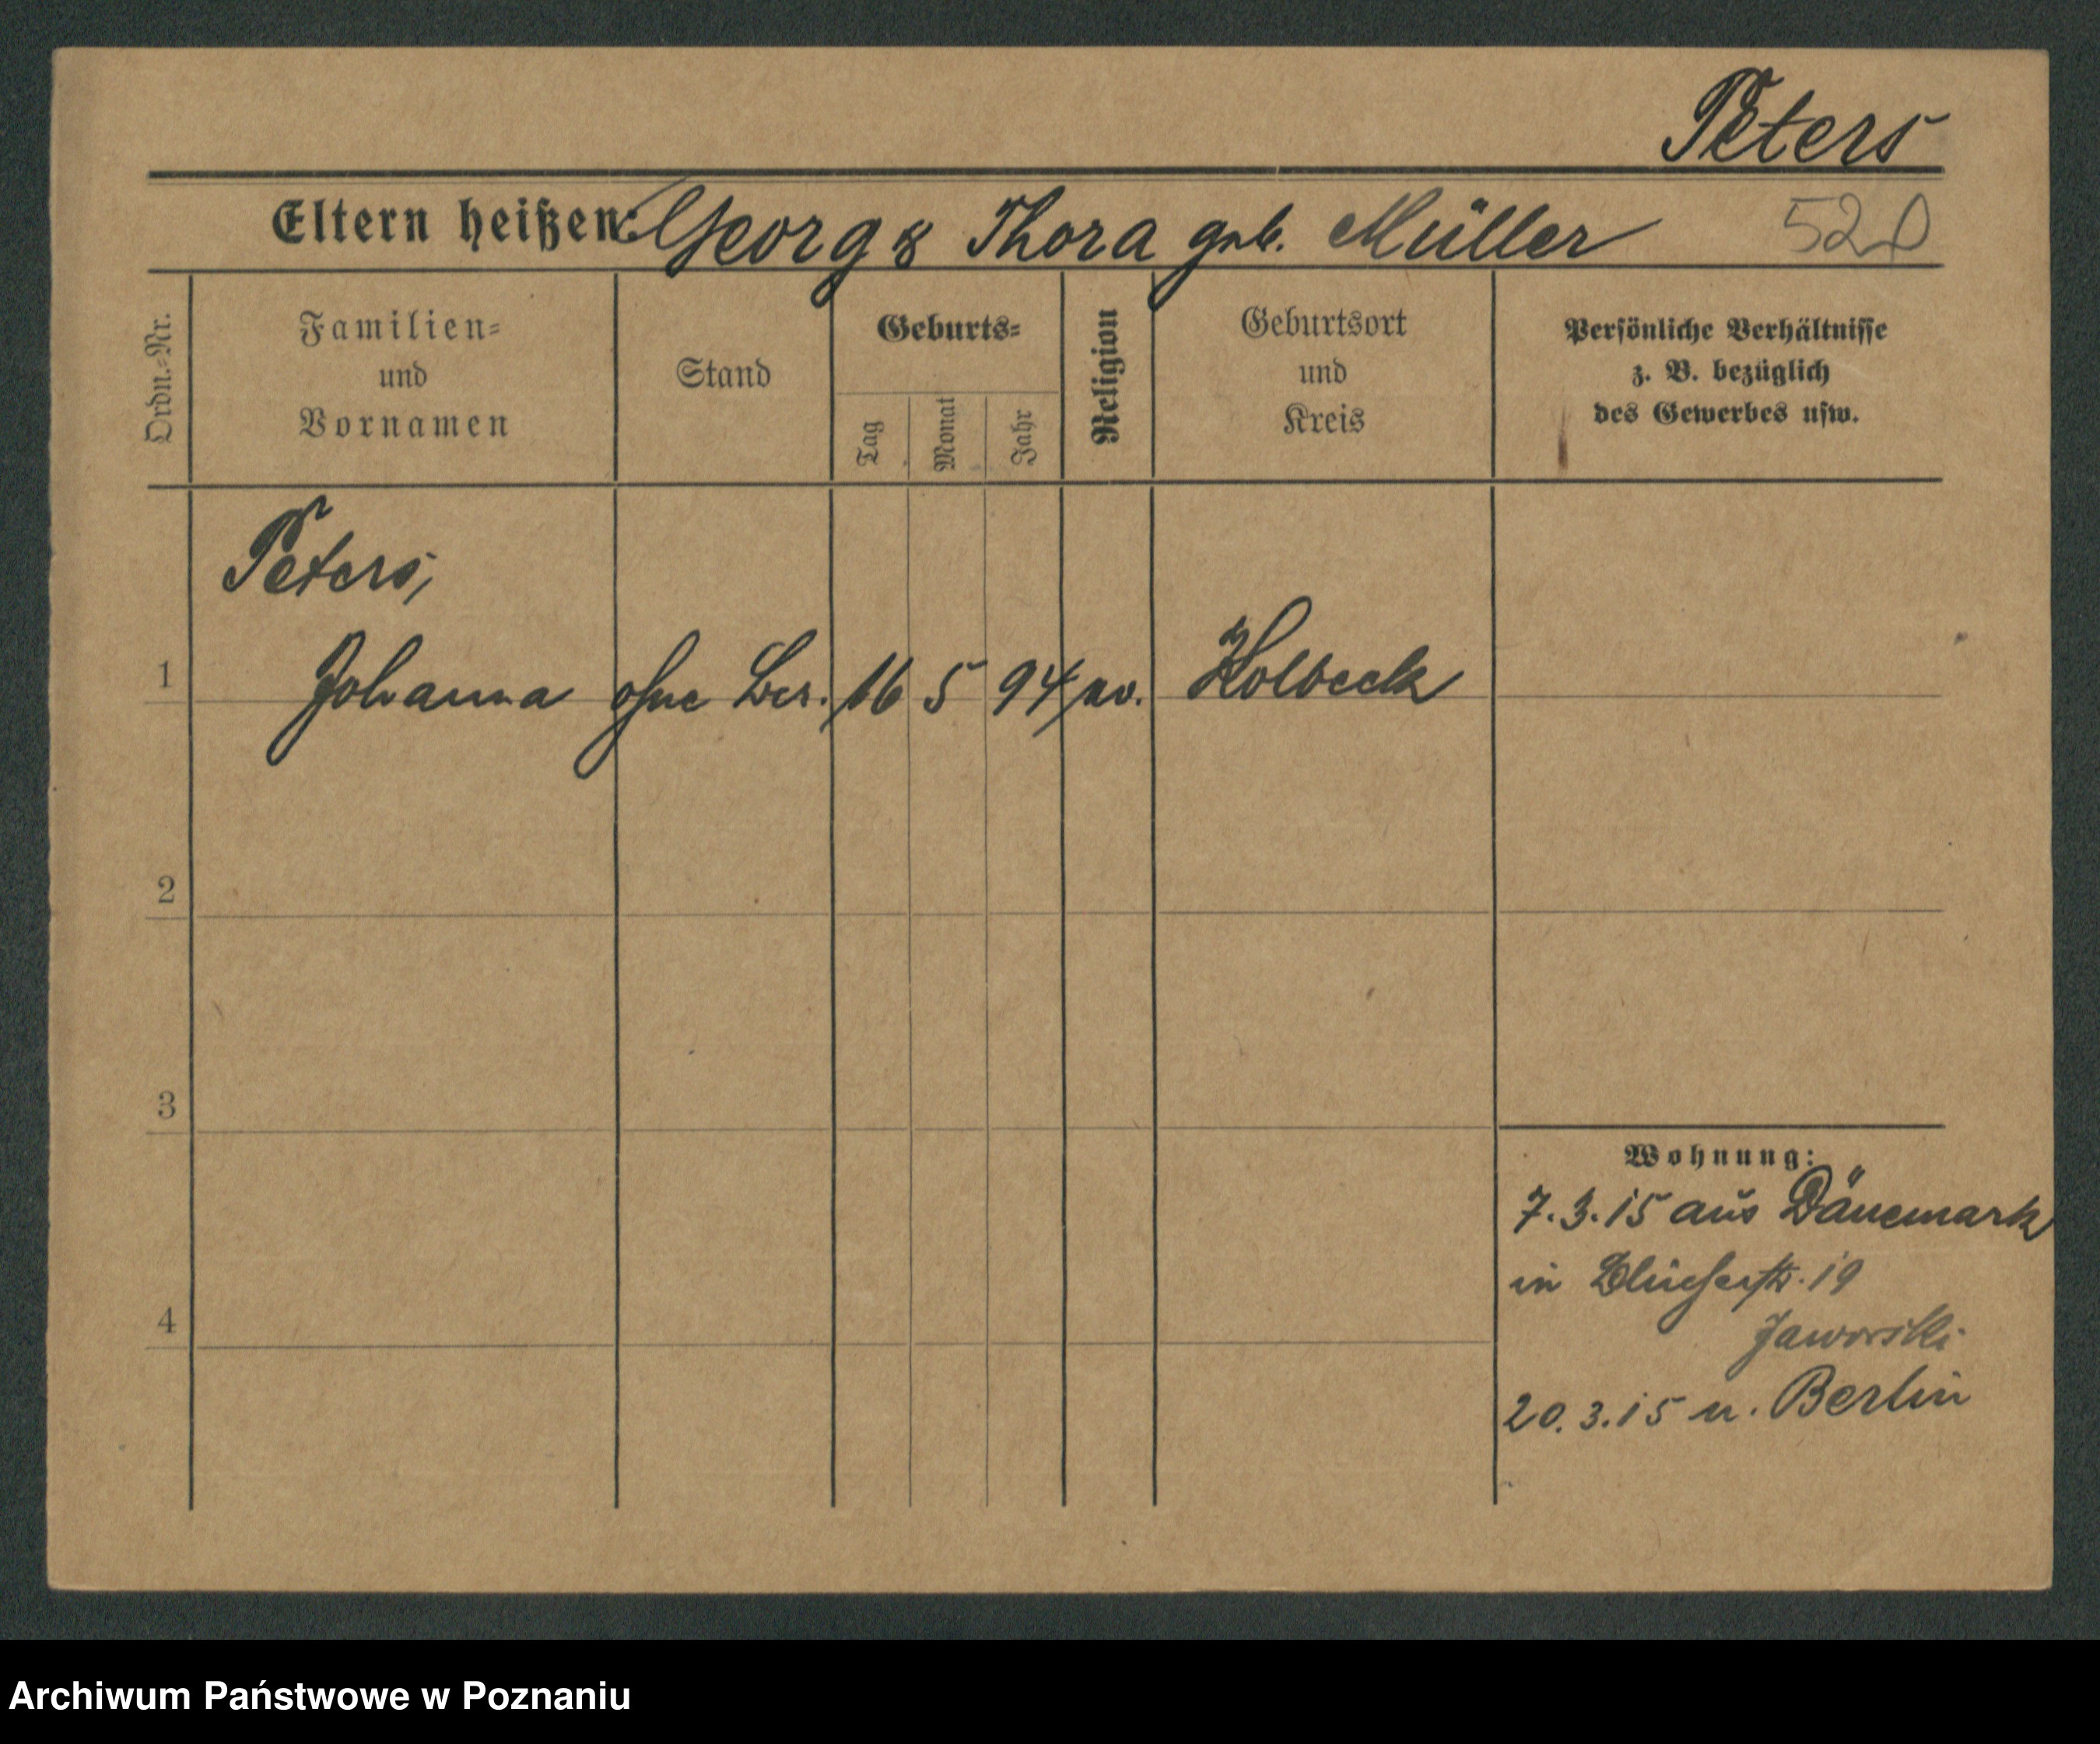 Peters
Eltern heißen: Georg & Thora geb. Müller
Ordn.-Nr.
Familien-
und
Vornamen
Stand
Geburts-
Tag
Monat
Jahr
Religion
Geburtsort
und
Kreis
Persönliche Verhältnisse
z. B. bezüglich
des Gewerbes usw.
Peters,
1 Johanna ohne Ber. 16 5 94 ev. Holbeck
2
3
4
Wohnung:
7.3.15 aus Dänemark
in Blücherstr. 19
Jaworski
20.3.15 n. Berlin
Archiwum Państwowe w Poznaniu